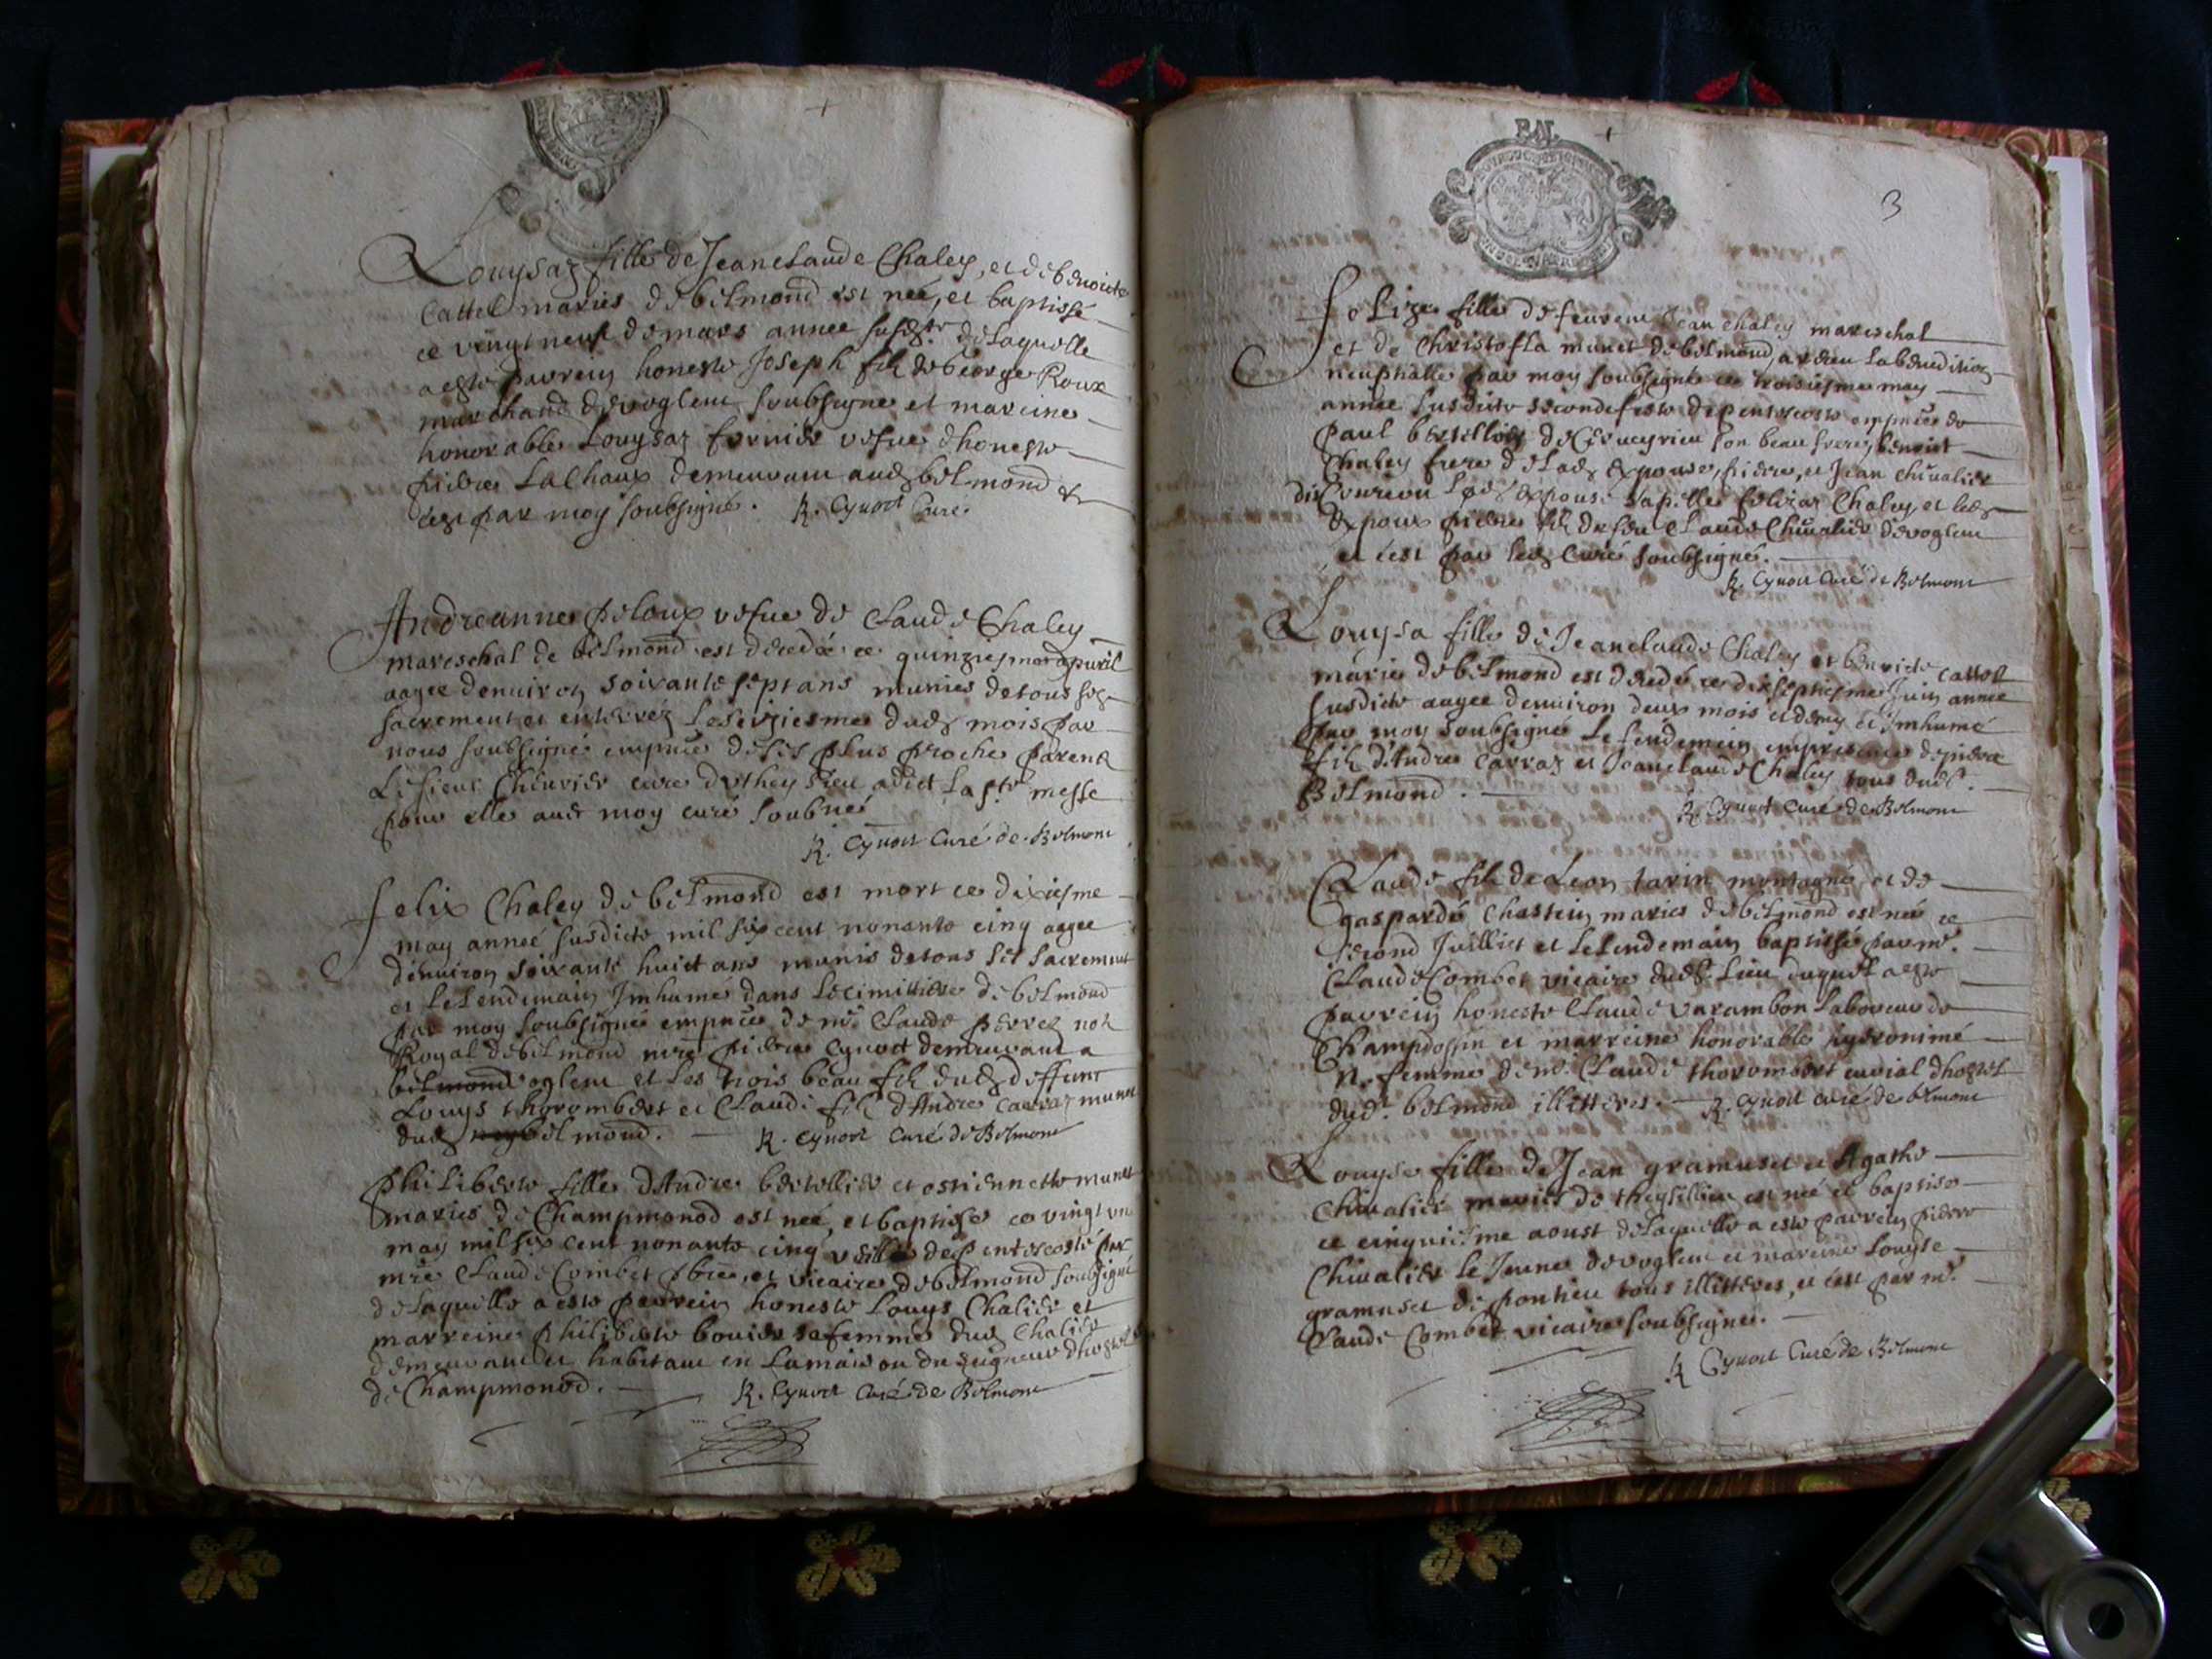 Louysaz fille de Jeanclaude Chaley, et de benoicte
Cattel mariés de belmond est neé, et baptissé
ce vingt neuf de mars annee susdte de laquelle
a esté parrein honeste Joseph fils de George Roux
marchand de voglenc soubsigne et mareine
honorable Louysaz fornier vefue dhoneste
pierre Lalhaux demeurant aud belmond et
cest par moy soubsigné. R. Cynost Curé
Andreanne peloux vefue de Claude Chaley
mareschal de belmond est decedée ce quinziesme apuril
aagee denuiron soixante sept ans munies de tous ses
sacrement et enterréz le seiziesme dud mois par
nous soubsigné empnce de ses plus proche parens
Le sieur Cheurier cure dutheysieu a dict la ste messe
pour elle aud moy curé soubné
R. Cynost Curé de Belmont
felix Chaley de belmond est mort ce dixiesme
may anneé susdicte mil six cent nonante cinq aagee
denuiron soixante huict ans munis de tous ses sacrement
et le lendemain Jnhume dans le cimittiere de belmond
par moy soubsigné empnce de mre Claude perret not
Royal de belmond mre pierre Cynost demeurant a
voglenc et les trois beau fils dud deffunt
Louys thorombert et Claude fils dAndre Carraz munet
dud belmond. R. Cynost Curé de Belmont
Philiberte fille dAndre bertellier et estiennette munet
maries de Champmonod est neé, et baptise ce vingt un
may mil six cent nonante cinq veille de pentecoste par
mre Claude Combet pbre, et vicaire de belmond soubsigné
de laquelle a esté parrein honeste Louys Chalier et
marreine philiberte bouier sa femme dud Chalier
demeurant et habitant en la maison du seigneur
de Champmonod. R. Cynost Curé de Belmont
3
felize fille de feu Jean chaley mareschal
et de Christofla munet de belmond a receu la benediction
neuptialle par moy soubsigné ce troisiesme may
annee susdicte seconde feste de pentecoste empnce de
Paul bertellier de son beau frere, benoist
Chaley frere de lad espouse, pierre, et Jean Chiualier
lad espouse sapelle felizaz Chaley, et led
espoux pierre fils de feu Claude Chiualier de voglenc
et cest par led Curé soubsigné.
R. Cynost Curé de Belmont
Louysa fille de Jeanclaude Chaley et benoicte Cattel
marie de belmond est decedé ce dix septiesme Juin annee
susdicte aagee denuiron deux mois et demy et Jmhumé
par moy soubsigné le lendemain empresence de pierre
fils d'Andre Carraz et Jeanclaude Chaley tous dud.
Belmond. R. Cynost Curé de Belmont
Claude fils de Leon tarin montagne et de
gaspardé Chastein maries de belmond est né ce
second Juilliet et le lendemain baptissé par mre
Claude Combet vicaire dud. Lieu duquel a esté
parrein honeste Claude varambon laboureur de
Champdossin et marreine honorable hyeronimé
N. femme de mr Claude thorombert curial
dud. belmond illitteres. R. Cynost curé de belmont
Louyse fille de Jean gramuset et Agathe
Chiualier maries de theysillieu est né et baptise
ce cinquiesme aoust de laquelle a esté parrein pierre
Chiualier le Jeune de voglenc et mareine Louyse
gramuset de pontieu tous illitteres, et cest par mre
Claude Combet vicaire soubsigné.
R Cynost Curé de Belmont